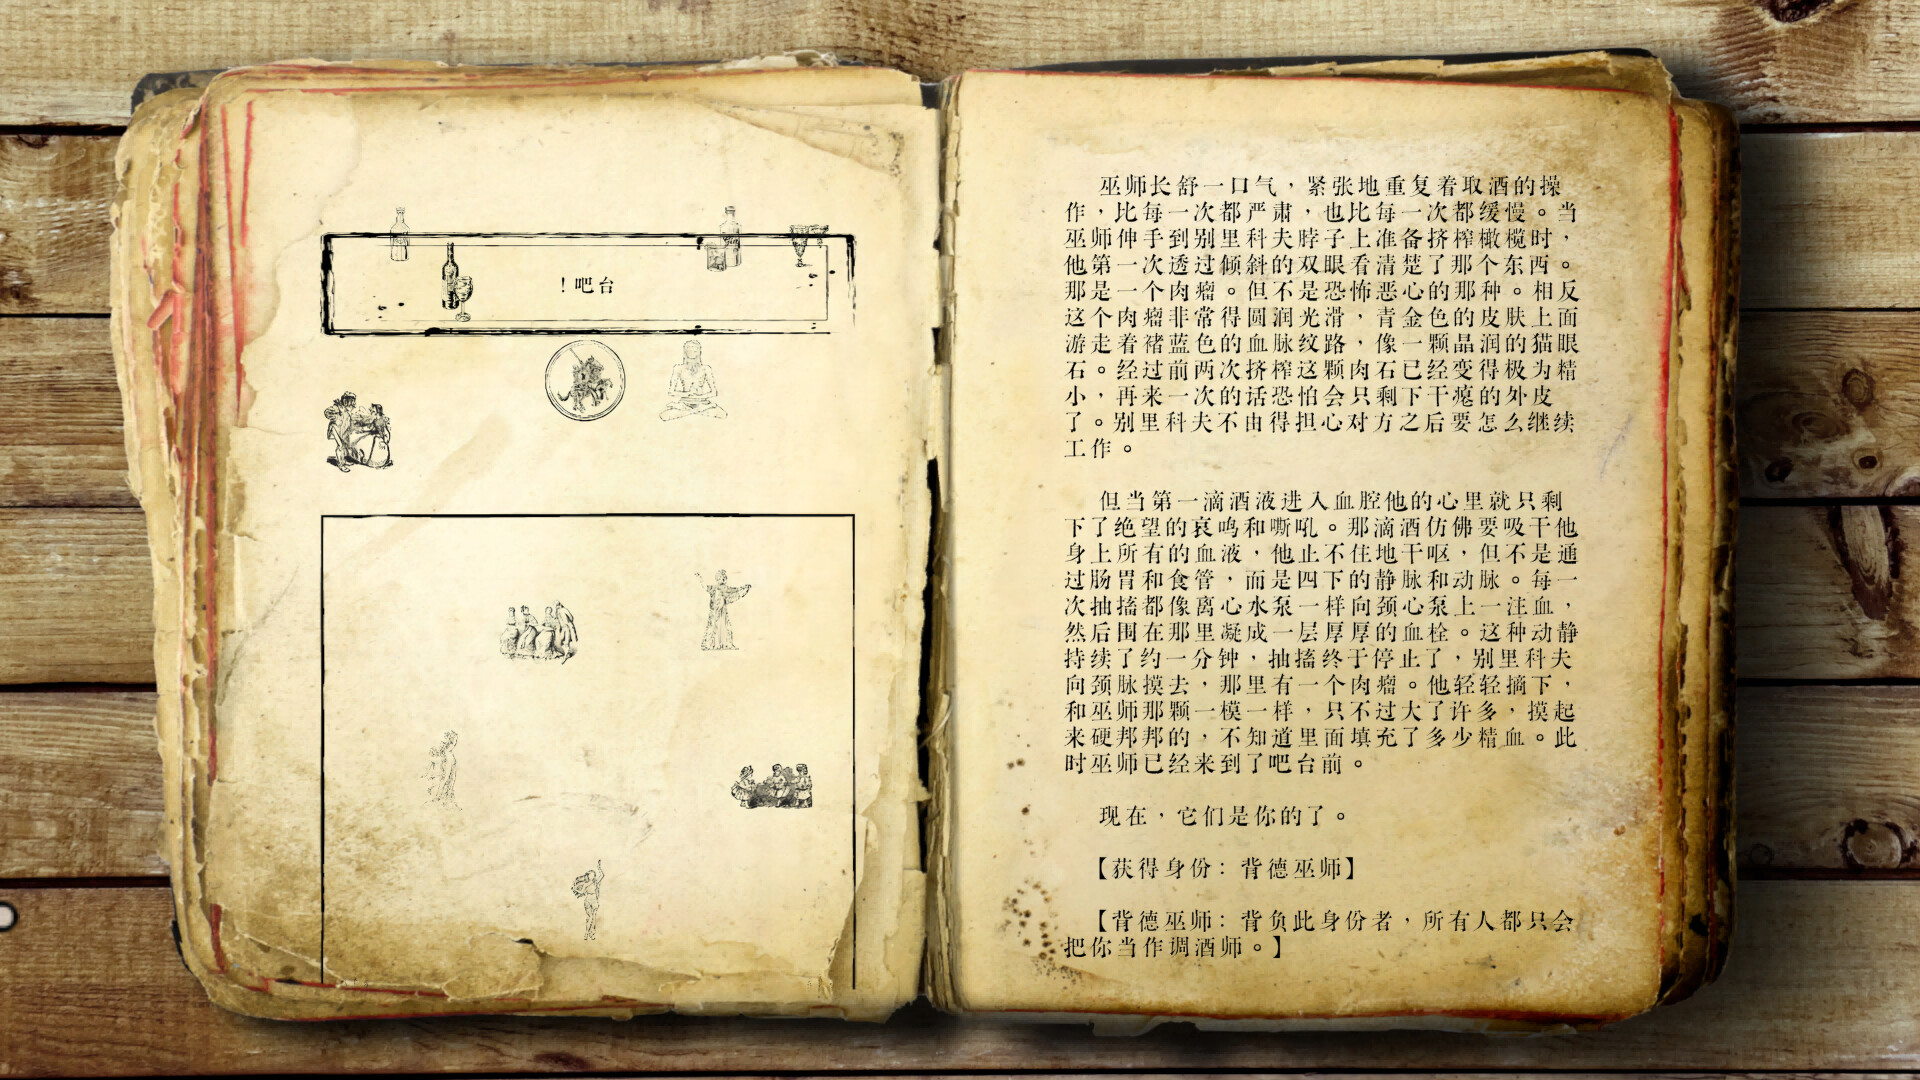 ！吧台
巫师长舒一口气，紧张地重复着取酒的操
作，比每一次都严肃，也比每一次都缓慢。当
巫师伸手到别里科夫脖子上准备挤榨橄榄时，
他第一次透过倾斜的双眼看清楚了那个东西。
那是一个肉瘤。但不是恐怖恶心的那种。相反
这个肉瘤非常得圆润光滑，青金色的皮肤上面
游走着褚蓝色的血脉纹路，像一颗晶润的猫眼
石。经过前两次挤榨这颗肉石已经变得极为精
小，再来一次的话恐怕会只剩下干瘪的外皮
了。别里科夫不由得担心对方之后要怎么继续
工作。
但当第一滴酒液进入血腔他的心里就只剩
下了绝望的哀鸣和嘶吼。那滴酒仿佛要吸干他
身上所有的血液，他止不住地干呕，但不是通
过肠胃和食管，而是四下的静脉和动脉。每一
次抽搐都像离心水泵一样向颈心泵上一注血，
然后围在那里凝成一层厚厚的血栓。这种动静
持续了约一分钟，抽搐终于停止了，别里科夫
向颈脉摸去，那里有一个肉瘤。他轻轻摘下，
和巫师那颗一模一样，只不过大了许多，摸起
来硬邦邦的，不知道里面填充了多少精血。此
时巫师已经来到了吧台前。
现在，它们是你的了。
【获得身份：背德巫师】
【背德巫师：背负此身份者，所有人都只会
把你当作调酒师。】